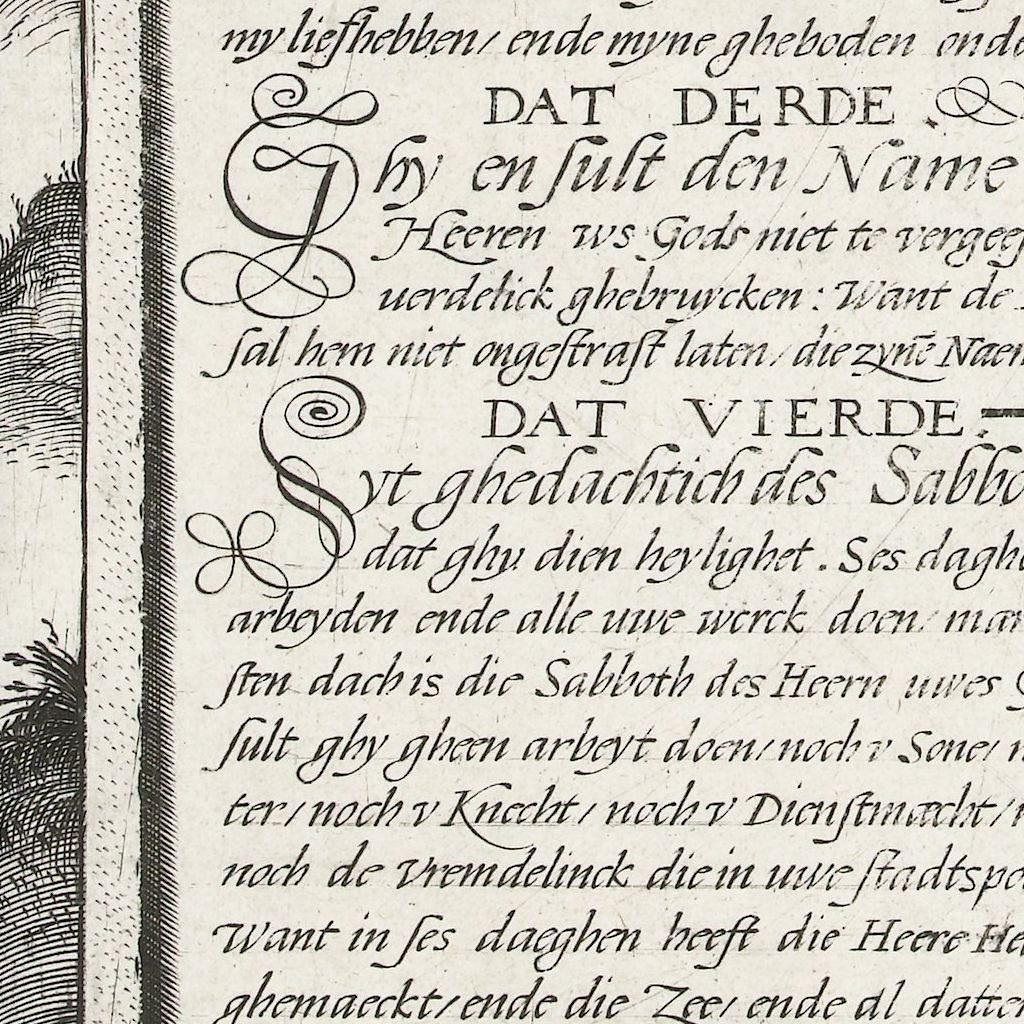 my liefhebben/ ende myne gheboden onde
DAT DERDE.
Ghy en sult den Name
Heeren ws Gods niet te vergeef
uerdelick ghebruycken: Want de
sal hem niet ongestraft laten/ die zynē Naem
DAT VIERDE.
Syt ghedachtich des Sabbo
dat ghy dien heylighet. Ses dagh
arbeyden ende alle uwe werck doen/ mar
sten dach is die Sabboth des Heern uwes G
sult ghy gheen arbeyt doen/ noch v Sone/ n
ter/ noch v Knecht/ noch v Dienstmaecht/ n
noch de Vremdelinck die in uwe stadtspo
Want in ses daeghen heeft die Heere He
ghemaeckt/ ende die Zee/ ende al datter